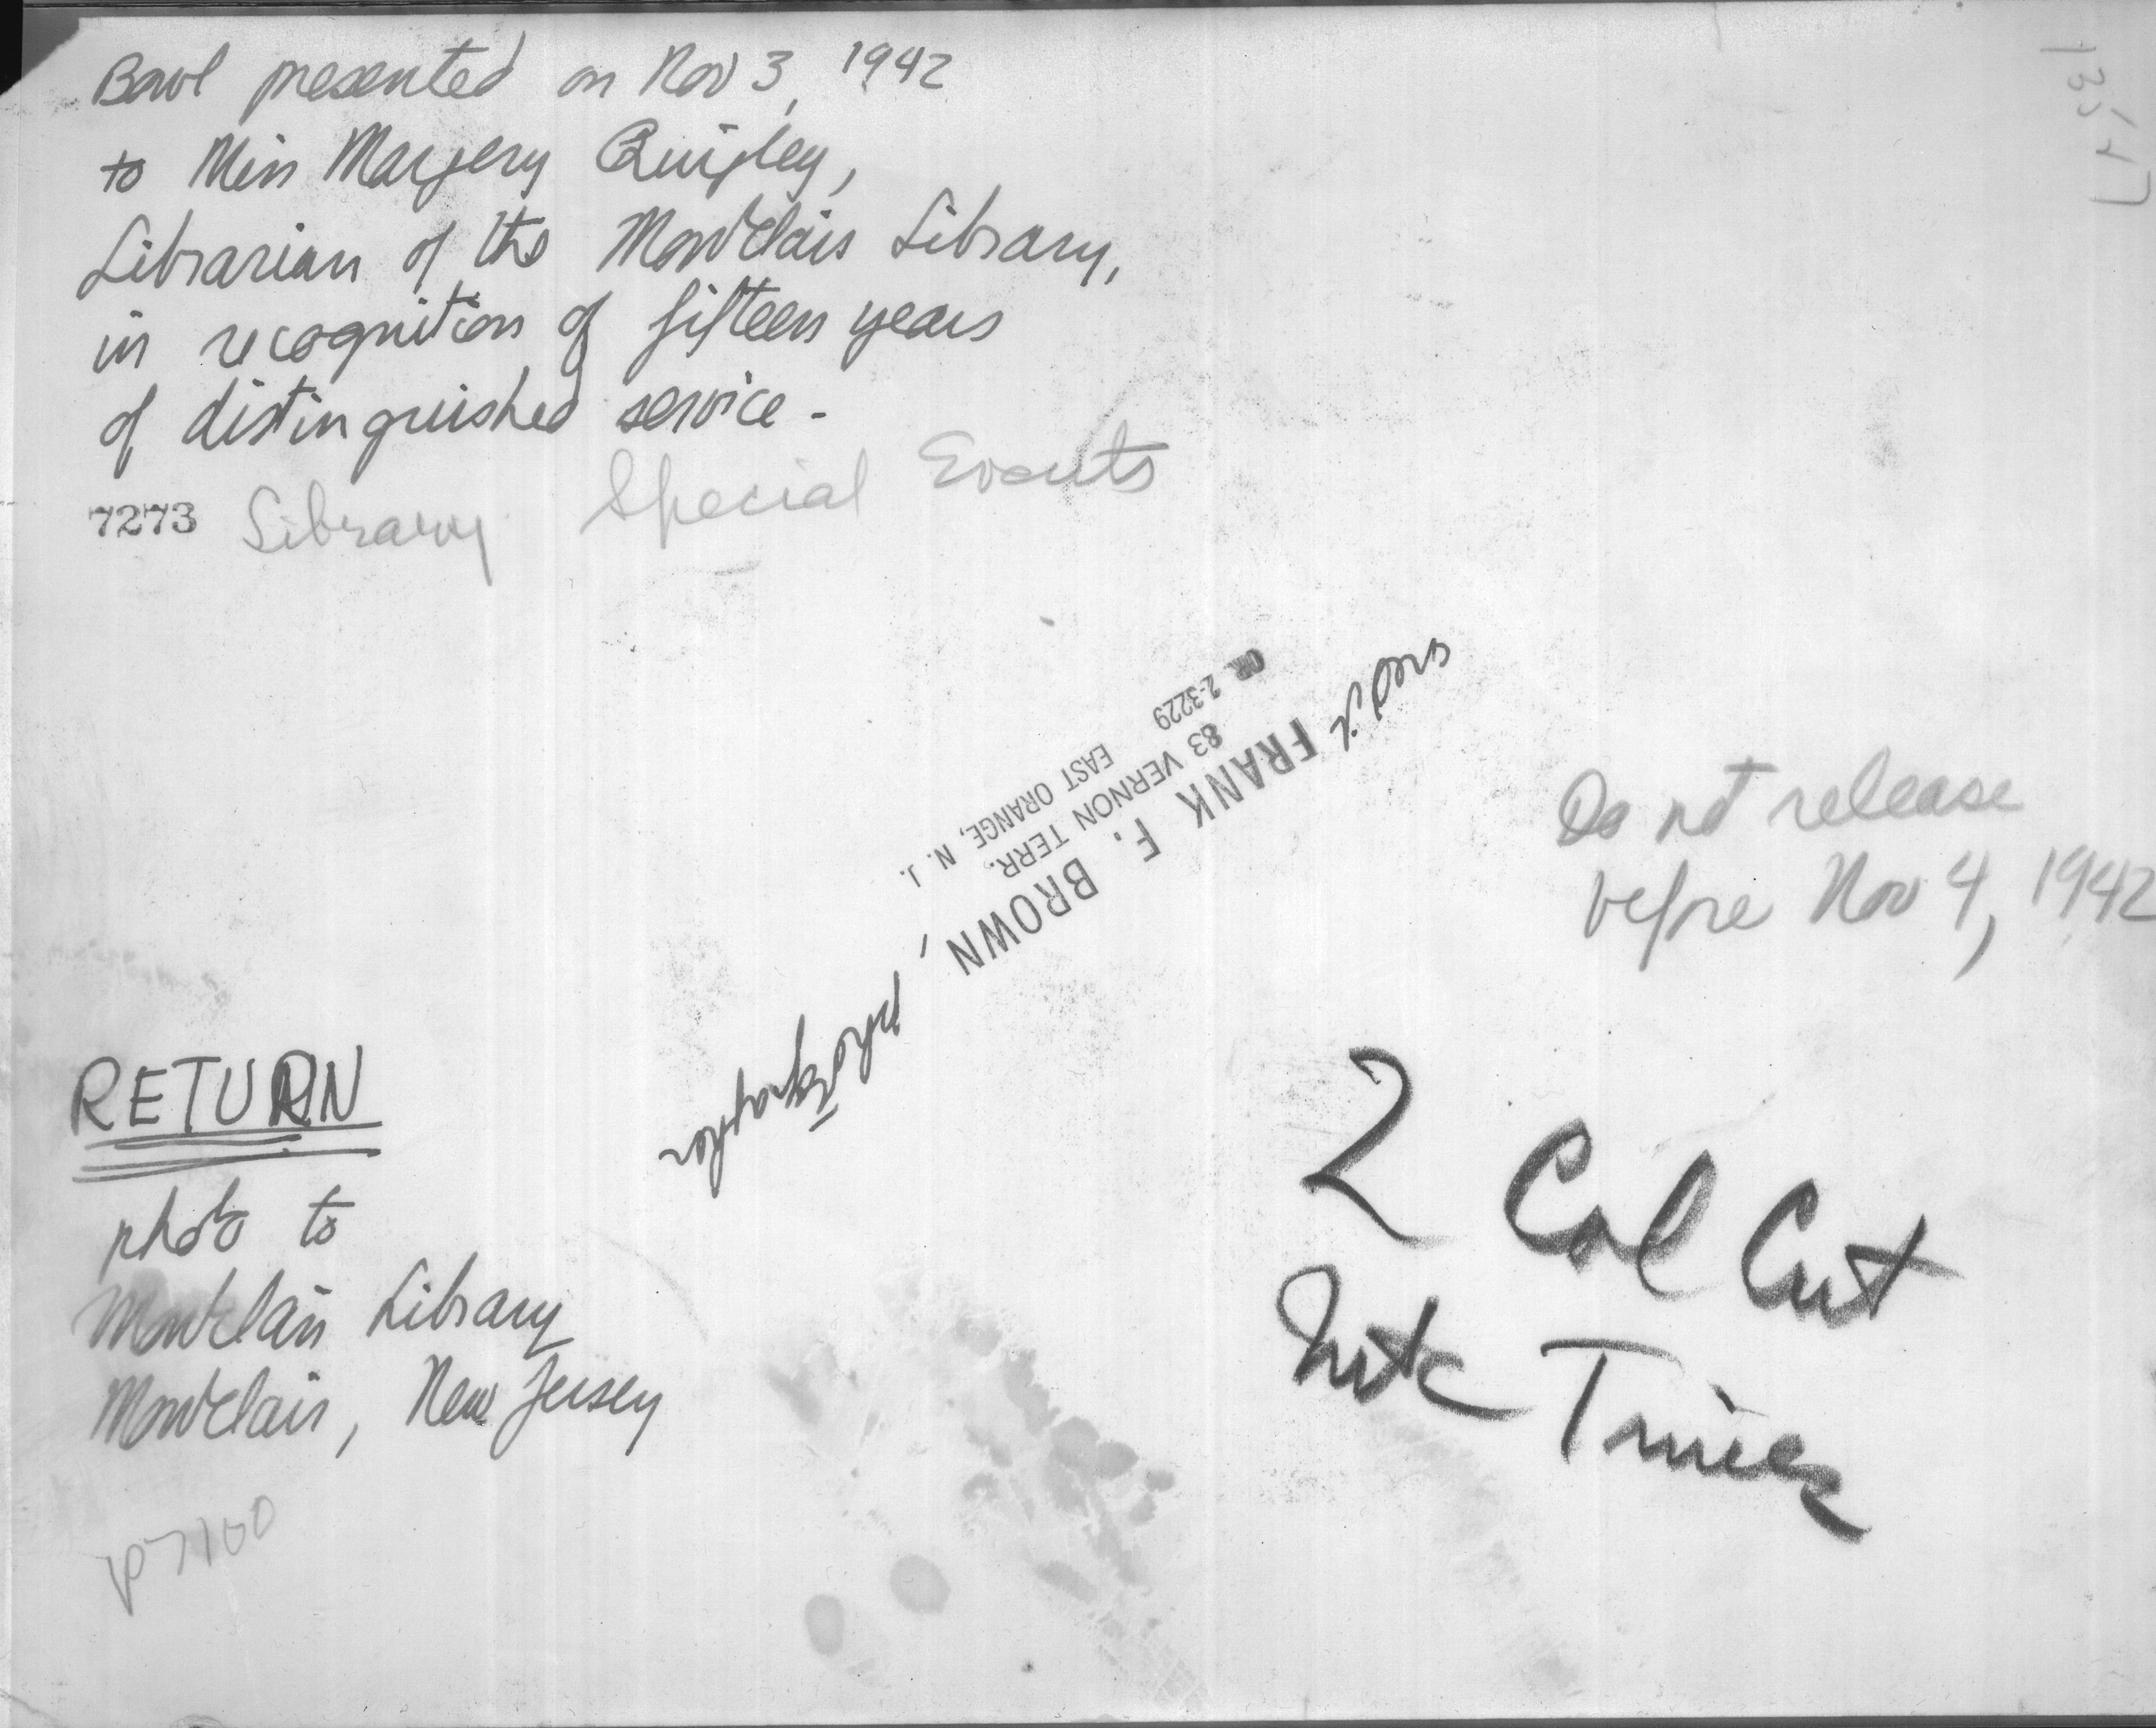 Bowl presented on Nov 3, 1942
to Miss Margery Quigley,
Librarian of the Montclair Library,
in recognition of fifteen years
of distinguished service -
7273 Library Special Events
FRANK F. BROWN, photographer
83 VERNON TERR.
EAST ORANGE, N. J.
OR 2-3229
Do not release
before Nov 4, 1942
RETURN
photo to
Montclair Library
Montclair, New Jersey
2 Col Cut
Times
p7100